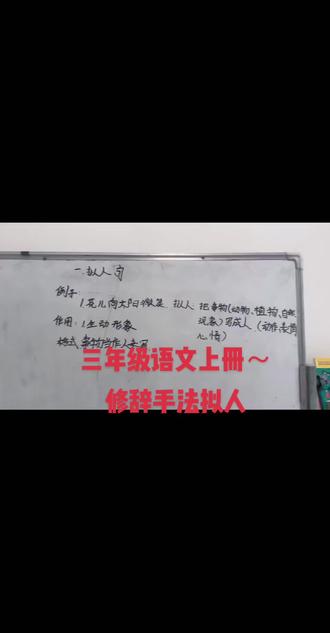 一.拟人句
例子:
1.花儿向太阳微笑 拟人:把事物(动物、植物、自然
现象)写成人(动作表情
心情)
作用:1生动形象
格式:事物当作人来写
三年级语文上冊～
修辞手法拟人